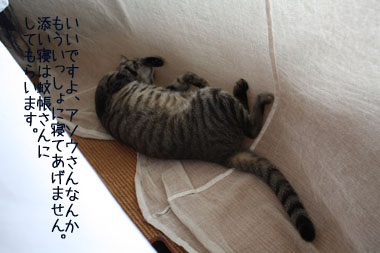 いいですよ、アソウさんなんか
もういっしょに寝てあげません。
添い寝は蚊帳さんに
してもらいます。